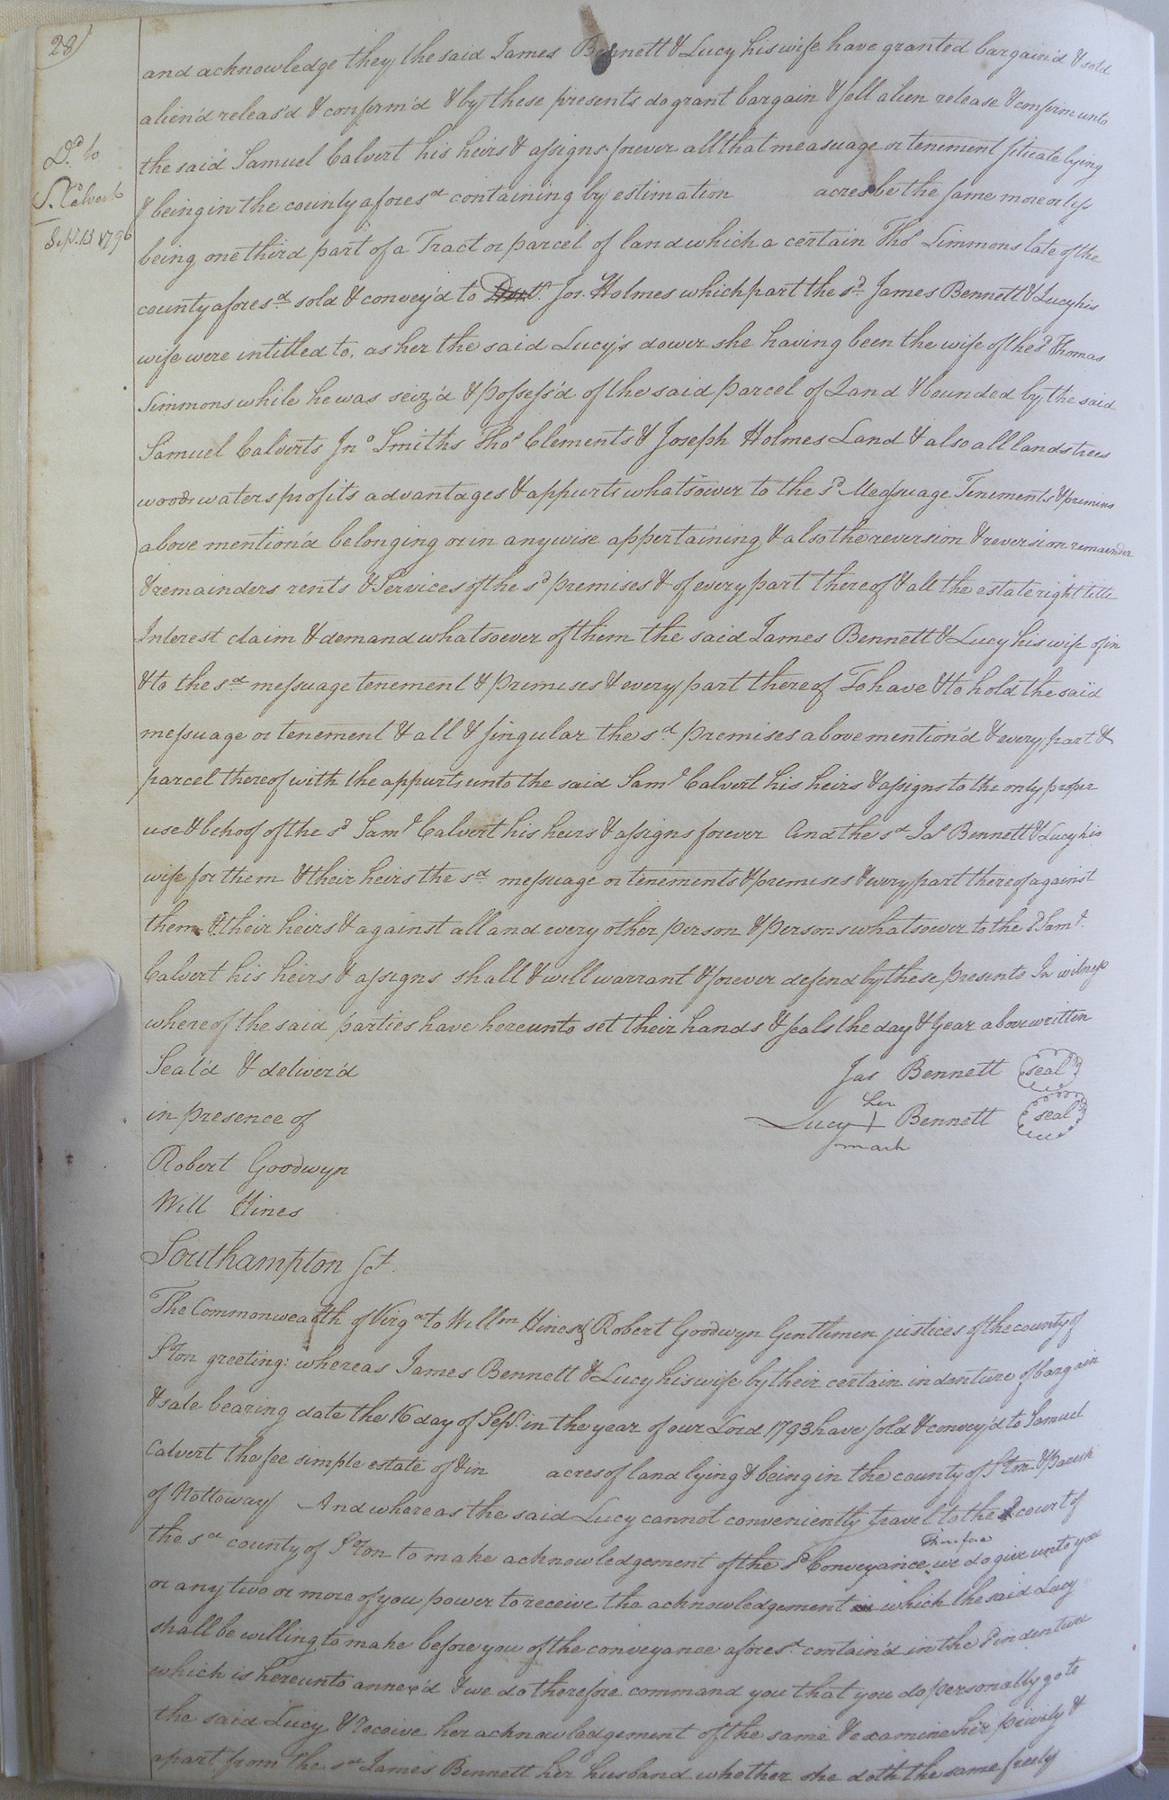 28)
Dd. to
S. Calvert
Sept. 13 1796
and acknowledge they the said James Bennett & Lucy his wife have granted bargain'd & sold
alien'd releas'd & confirm'd & by these presents do grant bargain & sell alien release & confirm unto
the said Samuel Calvert his heirs & assigns forever all that measuage or tenement situate lying
& being in the county afores.d containing by estimation acres be the same more or less
being one third part of a Tract or parcel of land which a certain Tho.s Simmons late of the
county afores.d sold & convey'd to Jos. Holmes which part the s.d James Bennett & Lucy his
wife were intitled to, as her the said Lucy's dower she having been the wife of the s.d Thomas
Simmons while he was seiz'd & possess'd of the said parcel of Land & bounded by the said
Samuel Calverts Jn.o Smiths Tho.s Clements & Joseph Holmes Land & also all lands trees
woods waters profits advantages & appurts whatsoever to the s.d Messuage Tenements & premises
above mention'd belonging or in anywise appertaining & also the reversion & reversion remainder
& remainders rents & Services of the s.d premises & of every part thereof & all the estate right title
Interest claim & demand whatsoever of them the said James Bennett & Lucy his wife of in
& to the s.d messuage tenement & premises & every part thereof To have & to hold the said
messuage or tenement & all & singular the s.d premises above mention'd & every part &
parcel thereof with the appurts unto the said Sam.l Calvert his heirs & assigns to the only proper
use & behoof of the s.d Sam.l Calvert his heirs & assigns forever And the s.d Ja.s Bennett & Lucy his
wife for them & their heirs the s.d messuage or tenements & premises & every part thereof against
them & their heirs & against all and every other person & persons whatsoever to the s.d Sam.l
Calvert his heirs & assigns shall & will warrant & forever defend by these presents In witness
whereof the said parties have hereunto set their hands & seals the day & year above written
Seal'd & deliver'd Jas Bennett seal
in presence of Lucy her + mark Bennett seal
Robert Goodwyn
Will Hines
Southampton Sct.
The Commonwealth of Virg.a to Will.m Hines & Robert Goodwyn Gentlemen justices of the county of
S'ton greeting: whereas James Bennett & Lucy his wife by their certain indenture of bargain
& sale bearing date the 16 day of Sept. in the year of our Lord 1793 have sold & convey'd to Samuel
Calvert the fee simple estate of & in acres of land lying & being in the county of S'ton & Parish
of Nottoway And whereas the said Lucy cannot conveniently travel to the court of
the s.d county of S'ton to make acknowledgement of the s.d Conveyance, Therefore we do give unto you
or any two or more of you power to receive the acknowledgement which the said Lucy
shall be willing to make before you of the conveyance afores.d contain'd in the s.d indenture
which is hereunto annex'd & we do therefore command you that you do personally go to
the said Lucy & receive her acknowledgement of the same & examine her privily &
apart from the s.d James Bennett her husband whether she doth the same freely